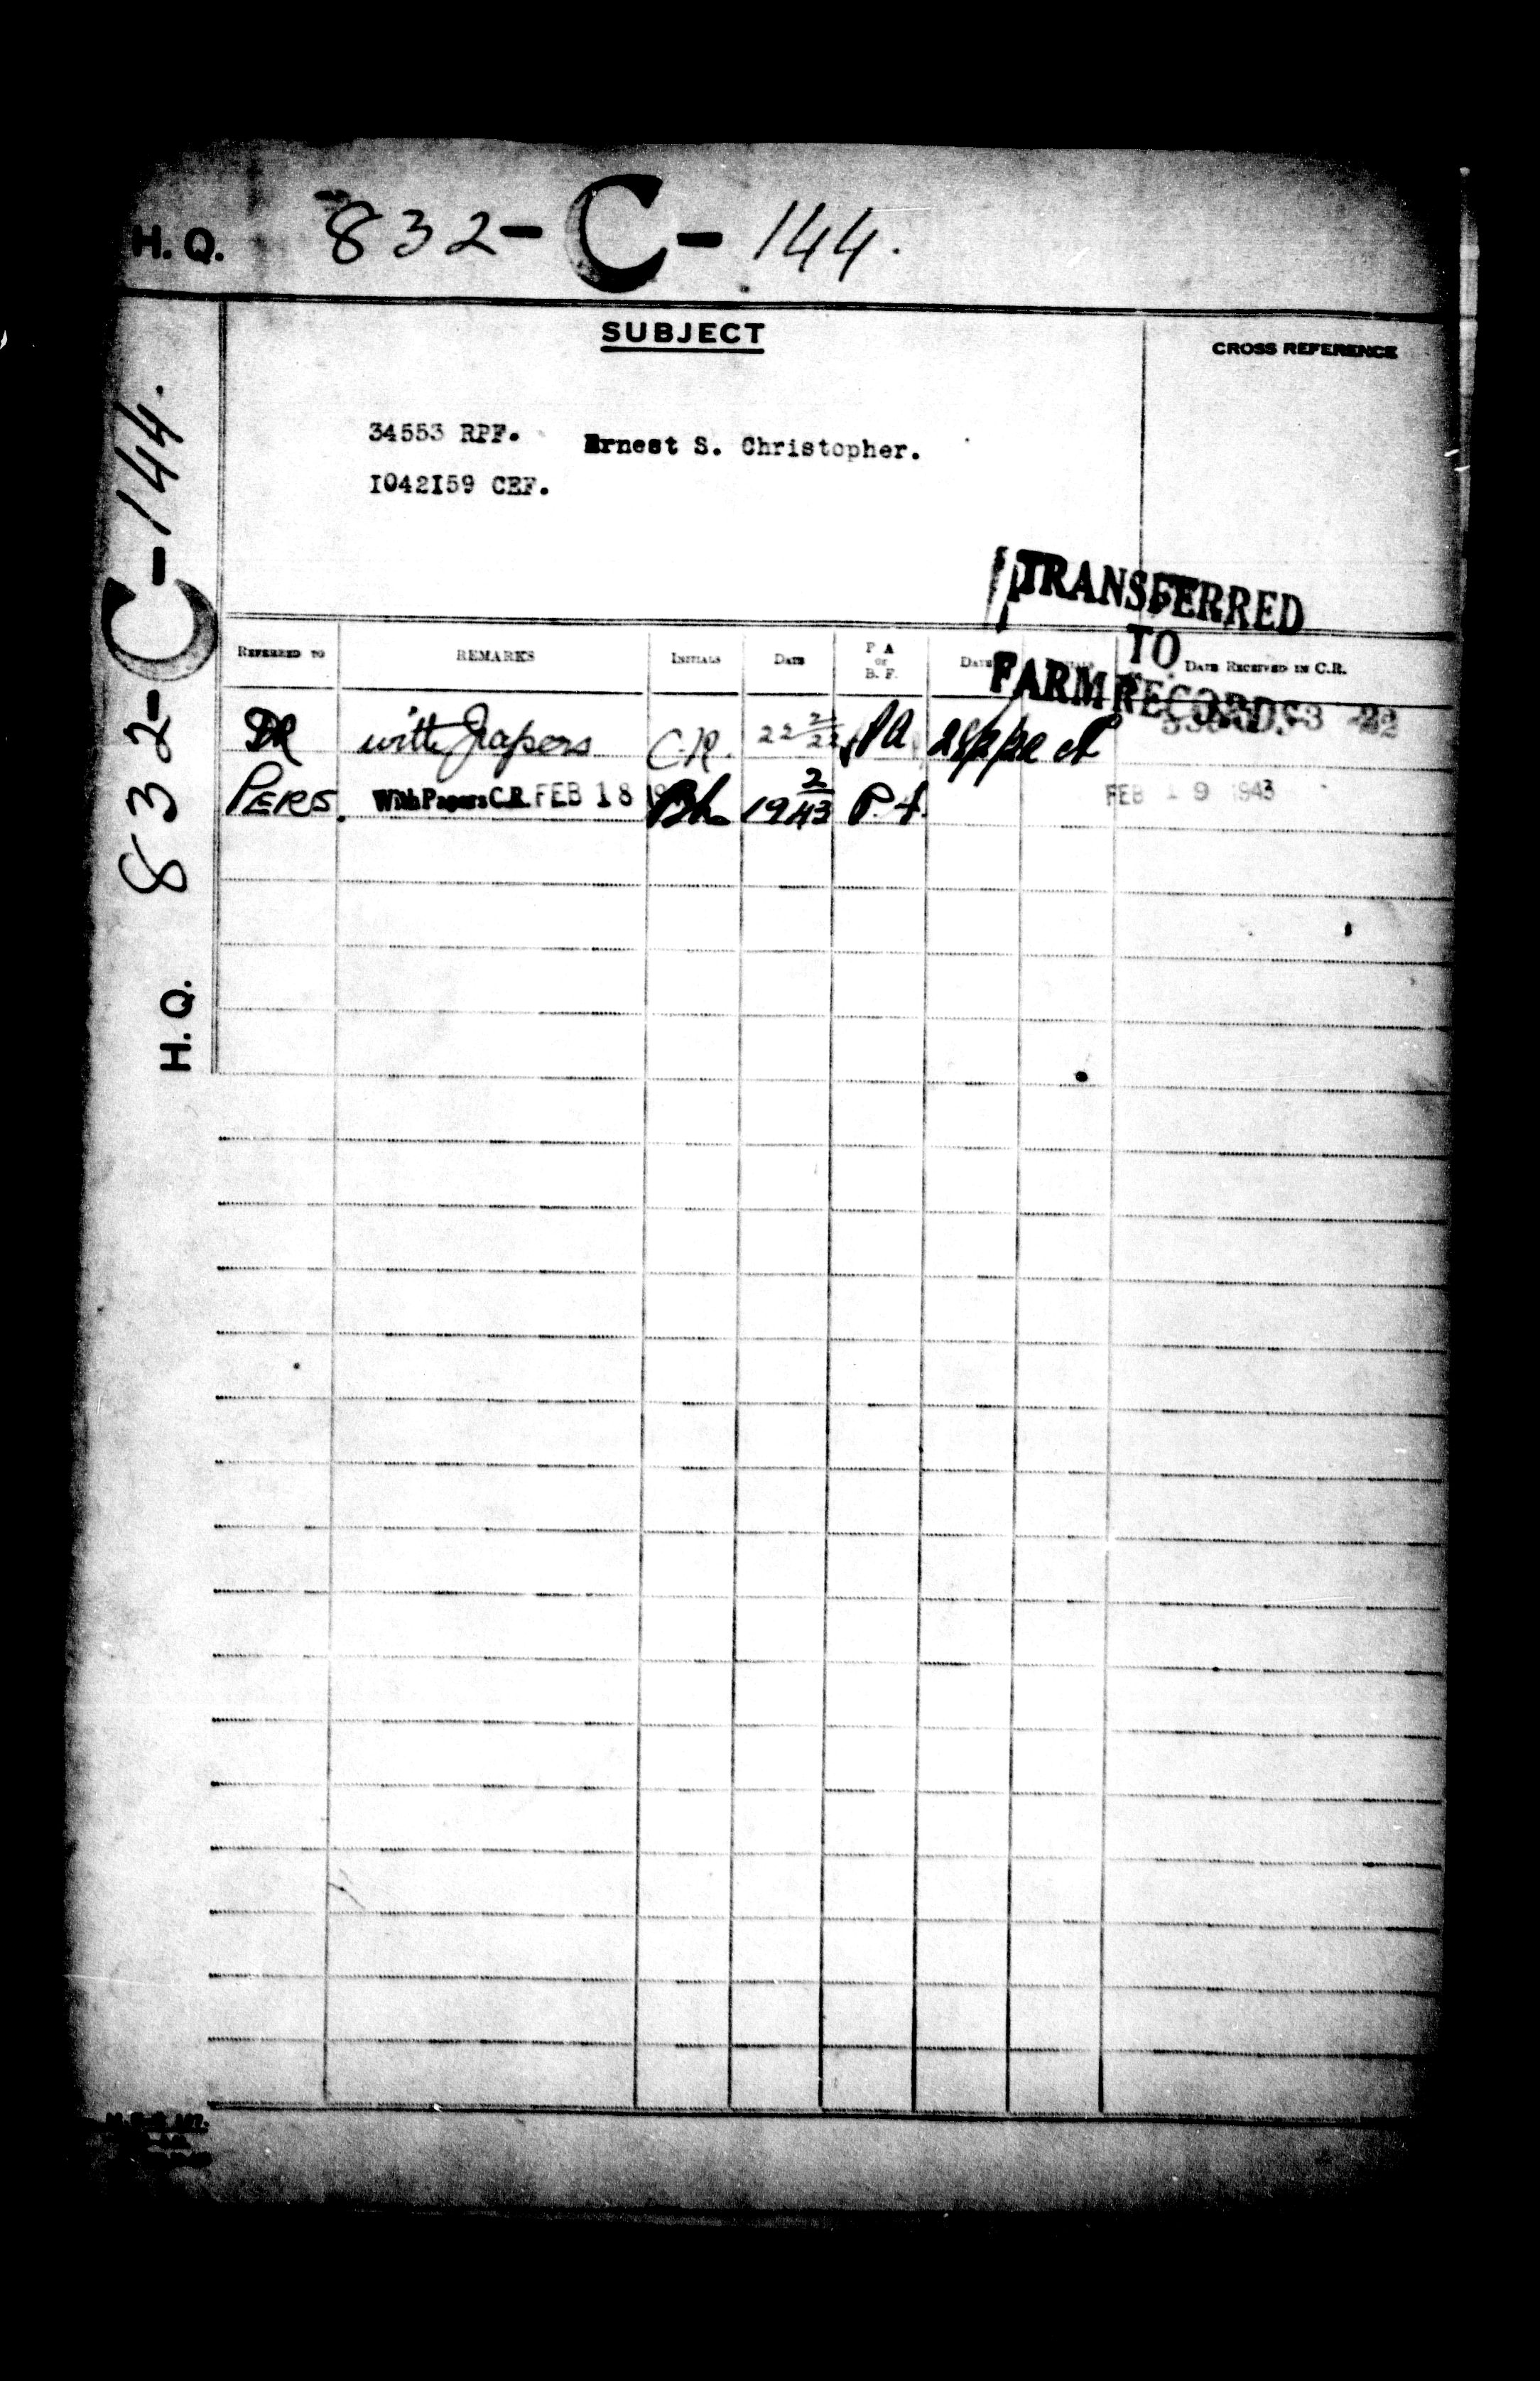 H. Q. 832-C-144.
SUBJECT
CROSS REFERENCE
34553 RPF. Ernest S. Christopher.
1042159 CEF.
TRANSFERRED
TO
FARM RECORDS
REFERRED TO REMARKS INITIALS DATE P A or B. F. DATE DATE RECEIVED IN C.R.
DR with papers C.R. 22 2/22 PA
PERS. With Papers C.R. FEB 18 19 2/43 P.A. FEB 19 1943
H. Q. 832-C-144.